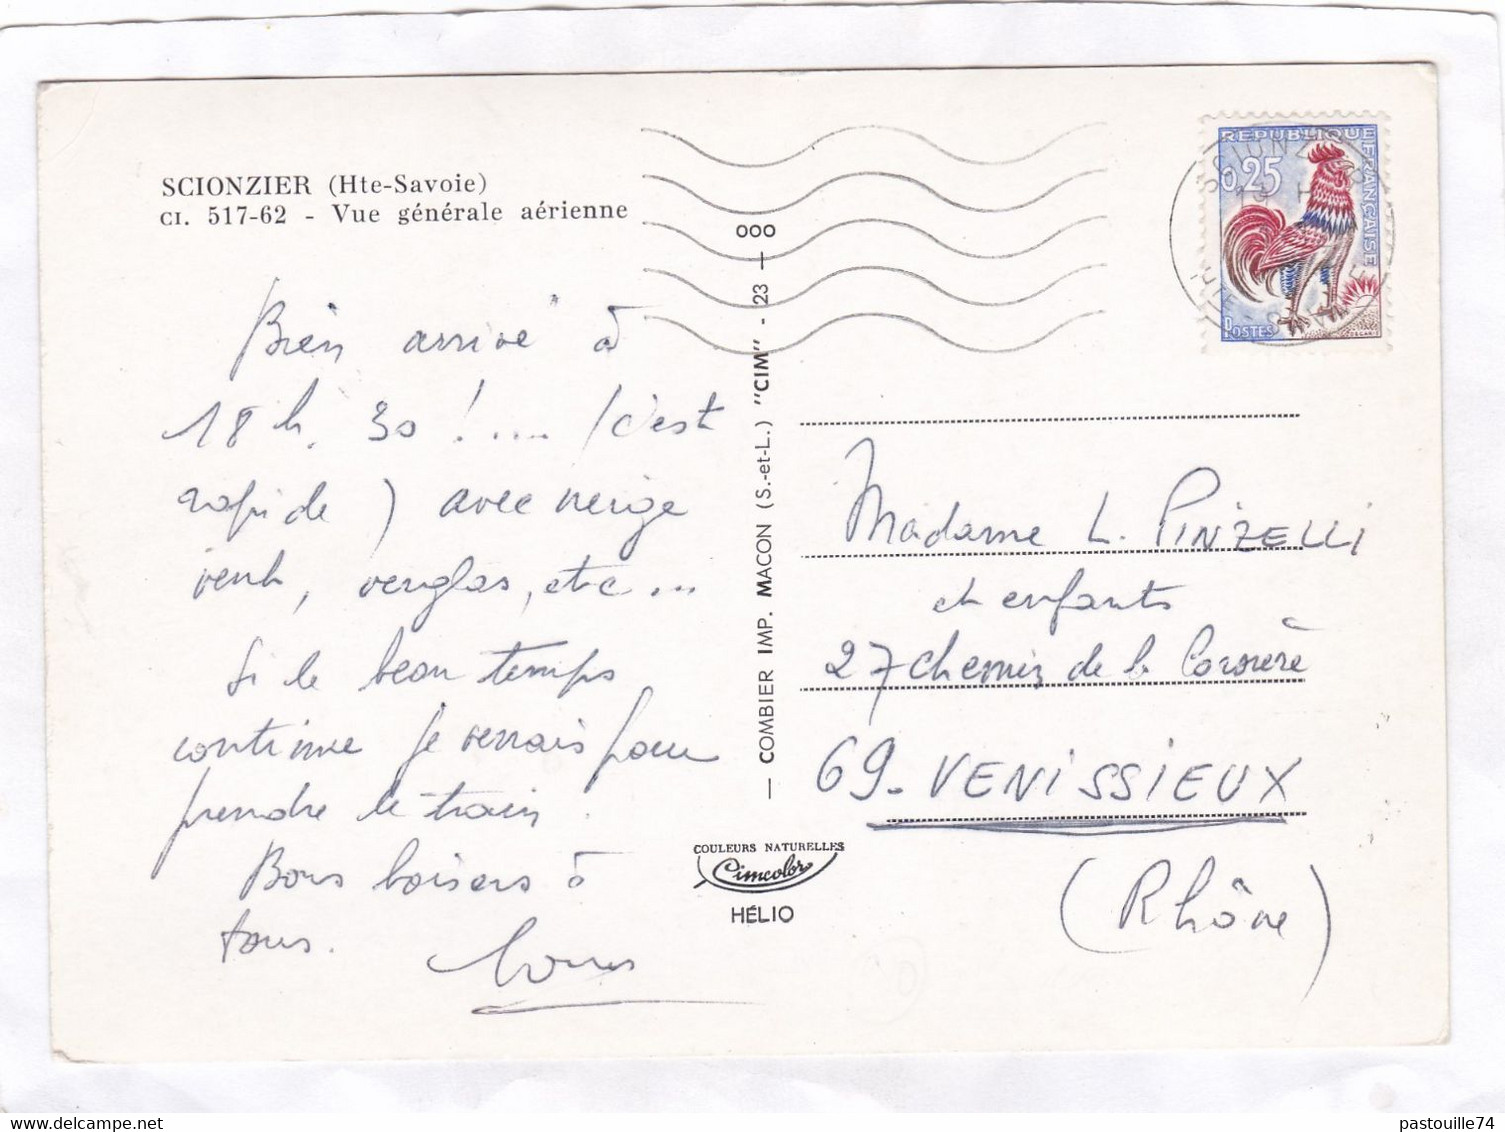 SCIONZIER (Hte-Savoie)
CI. 517-62 - Vue générale aérienne
Bien arrivé à
18 h. 30 !.... (c'est
rapide) avec neige
vent, verglas, etc...
Si le beau temps
continue je verrais pour
prendre le train.
Bons baisers à
tous.
Louis
— COMBIER IMP. MACON (S.-et-L.) "CIM" - 23 — 000
COULEURS NATURELLES
Cimcolor
HÉLIO
REPUBLIQUE FRANÇAISE
0,25
POSTES
SCIONZIER
HTE-SAVOIE
Madame L. PINZELLI
et enfants
27 chemin de la
69-VENISSIEUX
(Rhône)
pastouille74